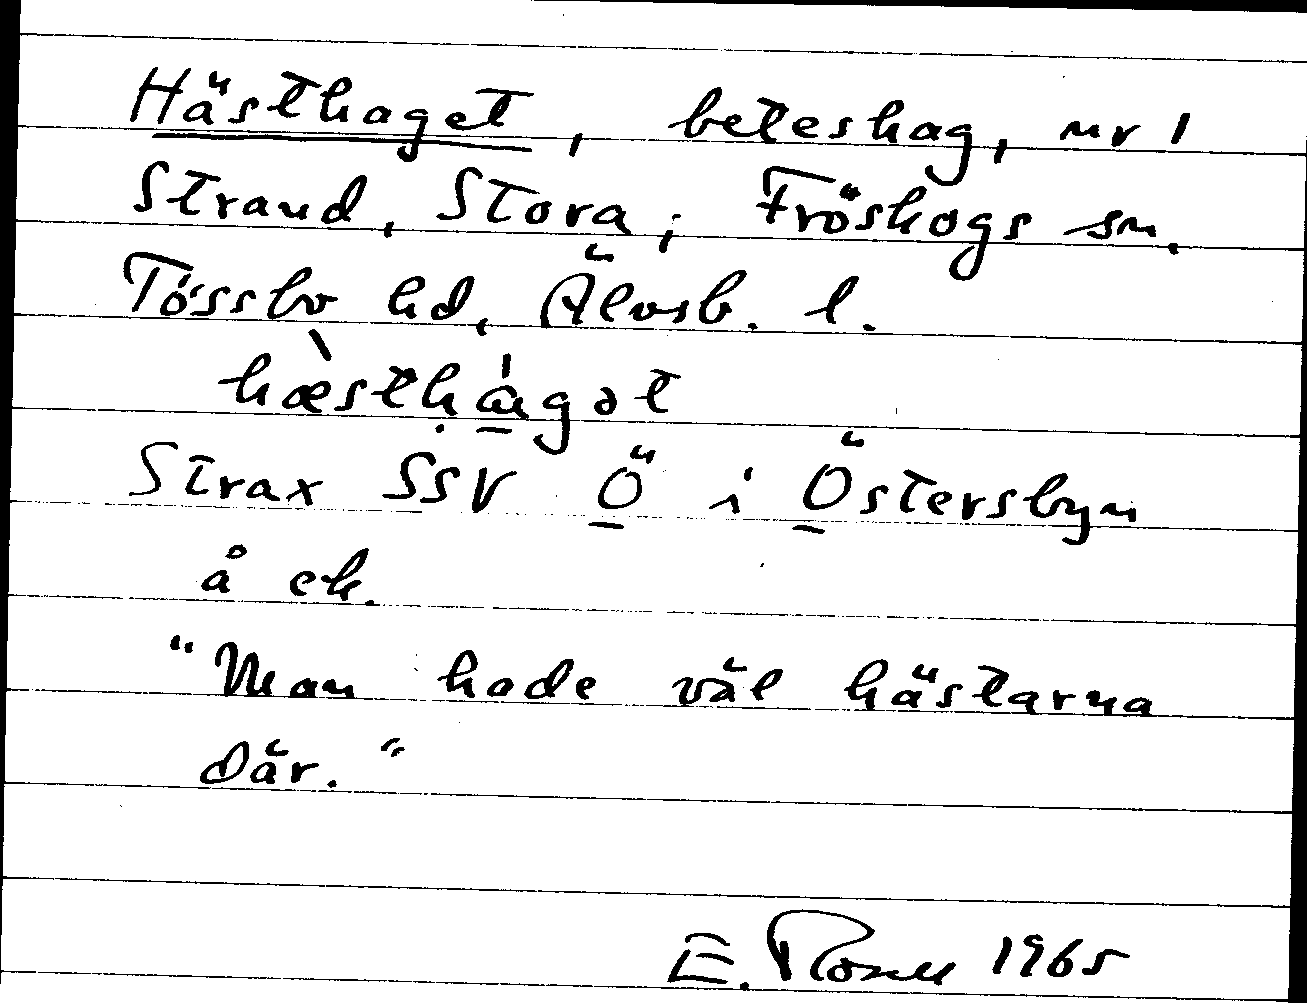 Hästhaget, beteshag, nr 1
Strand, Stora; Fröskogs sn.
Tössbo hd, Älvsb. l.
hæ̀sthá̱gət
Strax SSV Ö i Östersbyn
å ek.
"Man hade väl hästarna
där."
E. 1965